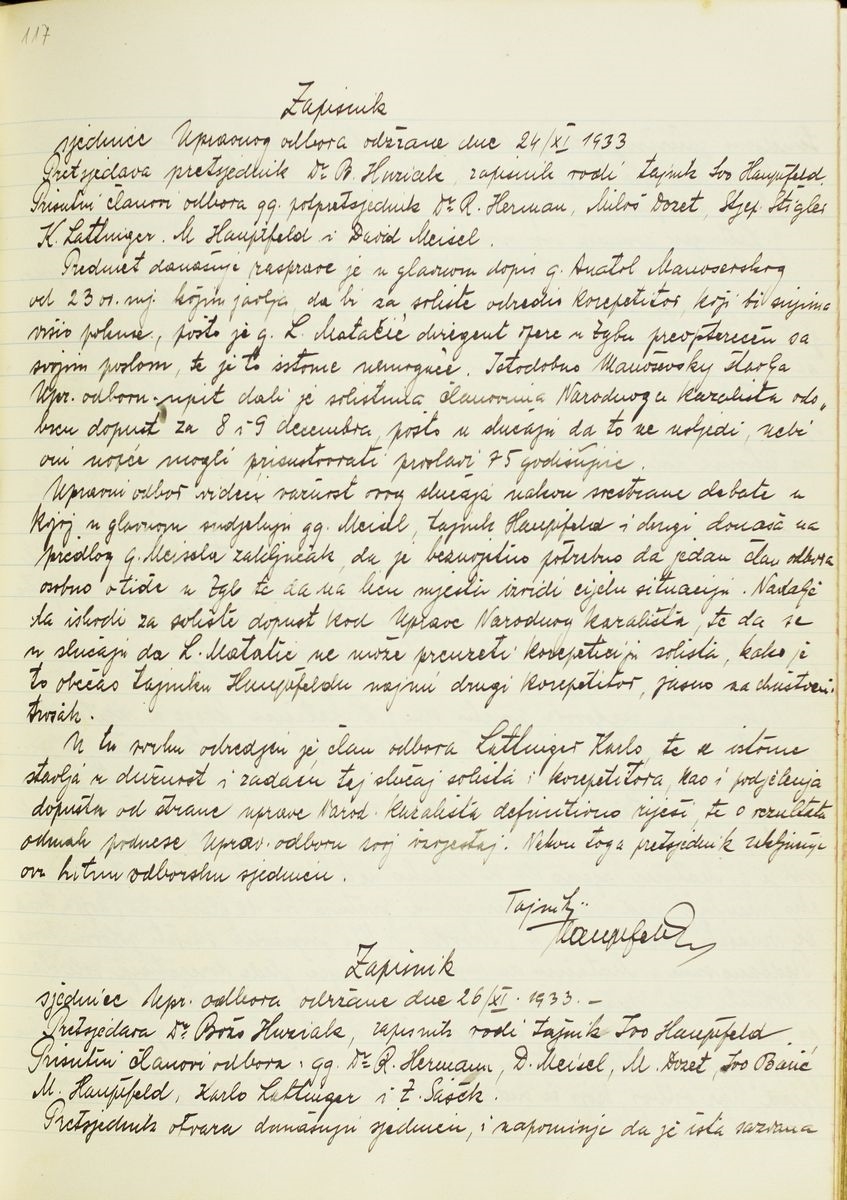 117
Zapisnik
sjednice Upravnog odbora održane dne 24/XI 1933
Pretsjedava pretsjednik Dr. B. Huziak, zapisnik vodi tajnik Ivo Hauptfeld.
Prisutni članovi odbora gg. potpretsjednik Dr. R. Herman, Miloš Dozet, Stjep. Štigler
K. Lattinger. M Hauptfeld i David Meisel.
Predmet današnje rasprave je u glavnom dopis g. Anatol Manoserskog
od 23 os. mj. kojim javlja da bi za soliste odredio korepetitor, koji bi snjima
vršio pokuse, pošto je g. L. Matačić dirigent opere u Zgbu preopterećen sa
svojim poslom, te je to istome nemoguće. Istodobno Manošovsky stavlja
Upr. odboru upit dali je solistima članovima Narodnoga kazališta odo„
bren dopust za 8 i 9 decembra, pošto u slučaju da to ne usljedi, nebi
oni uopće mogli prisustvovati proslavi 75 godišnjice.
Upravni odbor videći važnost ovog slučaja nakon svestrane debate u
kojoj u glavnom sudjeluju gg. Meisel, tajnik Hauptfeld i drugi donaša na
predlog g. Meisela zaključak, da je bezuvjetno potrebno da jedan član odbora
osobno otide u Zgb te da na licu mjesta izvidi cijelu situaciju. Nadalje
da ishodi za soliste dopust kod Uprave Narodnog kazališta, te da se
u slučaju da L. Matačić ne može preuzeti korepeticiju solista, kako je
to obećao tajniku Hauptfeldu najmi drugi korepetitor, jasno na društveni
trošak.
U tu svrhu odredjen je član odbora Lattinger Karlo, te se istome
stavlja u dužnost i zadaću taj slučaj solista i korepetitora, kao i podjelenja
dopusta od strane uprave Narod. kazališta definitivno riješi, te o rezultatu
odmah podnese Uprav. odboru svoj izvještaj. Nakon toga pretsjednik zaključuje
ovu hitnu odborsku sjednicu.
Tajnik:
Hauptfeld
Zapisnik
sjednice Upr. odbora održane dne 26/XI. 1933. –
Pretsjedava Dr. Božo Huziak, zapisnik vodi tajnik Ivo Hauptfeld
Prisutni članovi odbora: gg. Dr. R. Hermann, D. Meisel, M. Dozet, Ivo Barić
M. Hauptfeld, Karlo Lattinger i Z. Sašek.
Pretsjednik otvara današnju sjednicu, i napominje da je ista sazvana